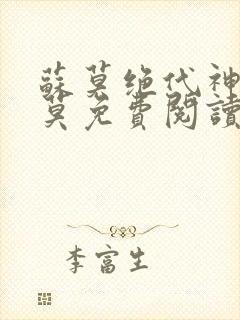 蘇莫絶代神
莫免費閱讀
李富生